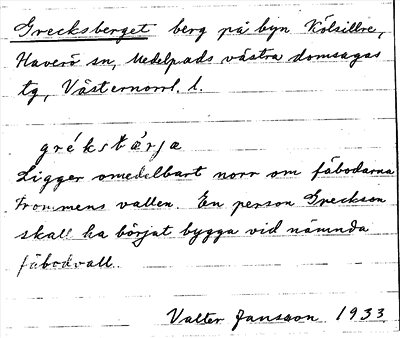 Grecksberget berg på byn Kölsillre,
Haverö sn, Medelpads västra domsagas
tg, Västernorrl. l.
grékstærja
Ligger omedelbart norr om fäbodarna
Trommens vallen. En person Greckson
skall ha börjat bygga vid nämnda
fäbodvall.
Valter Jansson 1933